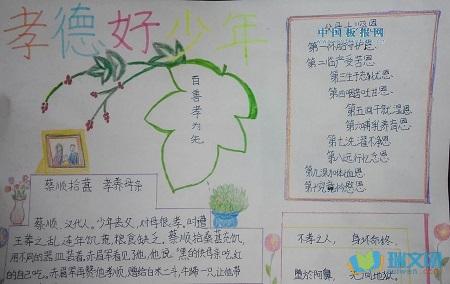 孝德好少年
中国板报网
父母十恩
第一怀胎守护恩
第二临产受苦恩
第三生子忘忧恩
第四咽苦吐甘恩
第五回干就湿恩
第六哺乳养育恩
第七洗濯不净恩
第八远行忆念恩
第九深加体恤恩
第十究竟怜愍恩
百善孝为先
蔡顺拾葚 孝养母亲
蔡顺，汉代人。少年丧父，对母很孝。时遭
王莽之乱，连年饥荒，粮食缺乏。蔡顺拾桑葚充饥，
用不同的器皿装着。赤眉军看见了他，他说“黑的供母亲吃，红
的自己吃。赤眉军
孝顺，赠给白米二斗，牛蹄一只，让他带
不孝之人，身坏命终，
堕於阿鼻，无间地狱。
瑞文网